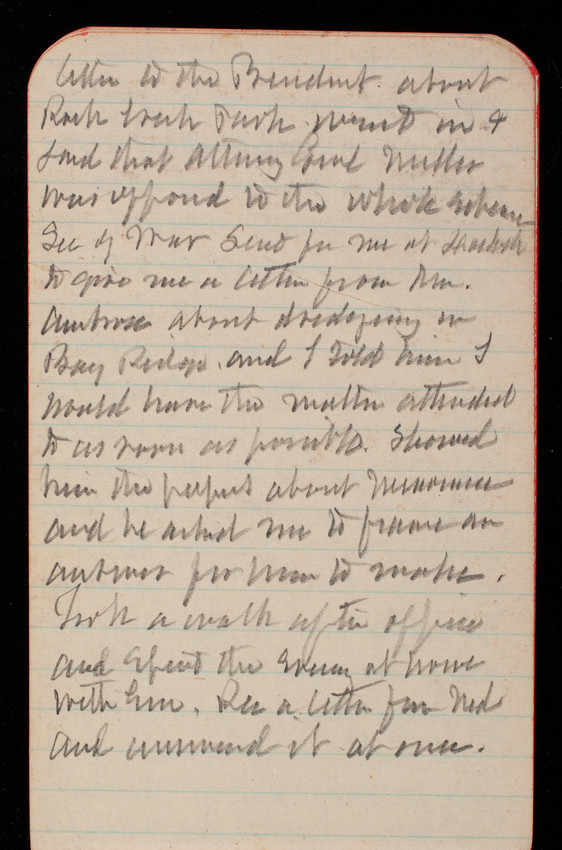 letter to the President about
Rock Creek Park went in &
said that Attorney Genl Miller
was opposed to the whole scheme
Sec of War sent for me at
to give me a letter from Mr.
Ambrose about dredging in
Bay Ridge. and I told him I
would have the matter attended
to as soon as possible. Showed
him the papers about
and he asked me to frame an
answer for him to make.
Took a walk after office
and spent the Evening at home
with Em. Rec a letter from Ned
and answered it at once.